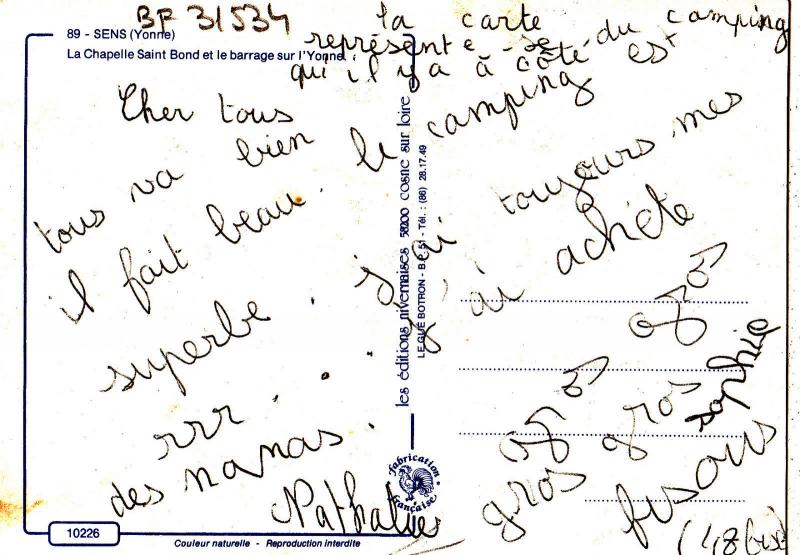 BF 31534
89 - SENS (Yonne)
La Chapelle Saint Bond et le barrage sur l'Yonne.
la carte
représente du camping
qui il y a à coté
Cher tous
tous va bien le camping est
il fait beau.
superbe. j'ai toujours mes
rrr... j'ai achète
des nanas.
Nathalie
gros
gros gros
gros bisous
sophie
(48 bis)
les éditions nivernaises 58200 cosne sur loire
LE GUÉ BOTRON - B.P. 51 - Tél. : (86) 28.17.49
fabrication française
10226
Couleur naturelle - Reproduction interdite